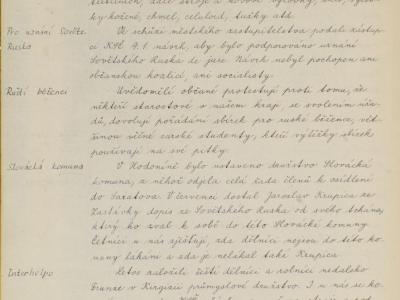 textilem, dále stroje a kovové výrobky, sklo, výrob-
ky kožené, chmel, celuloid, tužky atd.
Pro uznání Sovět. Ruska
Ve schůzi městského zastupitelstva podali zástup-
ci KSČ 9.1. návrh, aby bylo podporováno uznání
Sovětského Ruska de jure. Návrh nebyl pochopen ani
občanskou koalicí, ani socialisty.
Ruští běženci
Uvědomělí občané protestují proti tomu, že
někteří starostové v našem kraji, se svolením úřa-
dů, dovolují pořádání sbírek pro ruské běžence, vět-
šinou věčné carské studenty, kteří výtěžky sbírek
používají na své pitky.
Slovácká komuna
V Hodoníně bylo ustaveno družstvo Slovácká
komuna, z něhož odjela celá řada členů k osídlení
do Saratova. V červenci dostal Jaroslav Krupica ze
Zastávky dopis ze Sovětského Ruska od svého
který ho zval k sobě do této Slovácké komuny
letníci u nás zjišťují, zda dělníci nejsou do této ko-
muny lákáni a zda je nelákal také Krupica
Interhelpo
Letos založili čeští dělníci a rolníci nedaleko
Frunze v Kirgizii průmyslové družstvo. I u nás se ko-